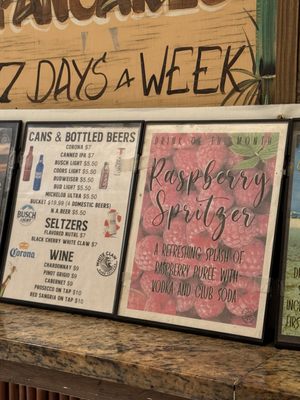 PANCAKES
7 DAYS A WEEK
CANS & BOTTLED BEERS
CORONA $7
CANNED IPA $7
BUSCH LIGHT $5.50
COORS LIGHT $5.50
BUDWEISER $5.50
BUD LIGHT $5.50
MICHELOB ULTRA $5.50
BUCKET $19.99 (4 DOMESTIC BEERS)
N.A BEER $5.50
BUSCH
LIGHT
SELTZERS
FLAVORED NUTRL $7
BLACK CHERRY WHITE CLAW $7
Corona
WINE
CHARDONNAY $9
PINOT GRIGIO $9
CABERNET $9
PROSECCO ON TAP $10
RED SANGRIA ON TAP $10
WHITE CLAW
DRINK OF THE MONTH
Raspberry
Spritzer
A REFRESHING SPLASH OF
RASPBERRY PUREE WITH
VODKA AND CLUB SODA